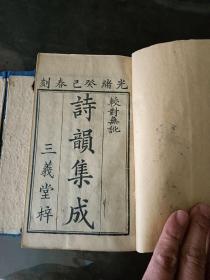 光緒癸巳春刻
較對無訛
詩韻集成
三義堂梓